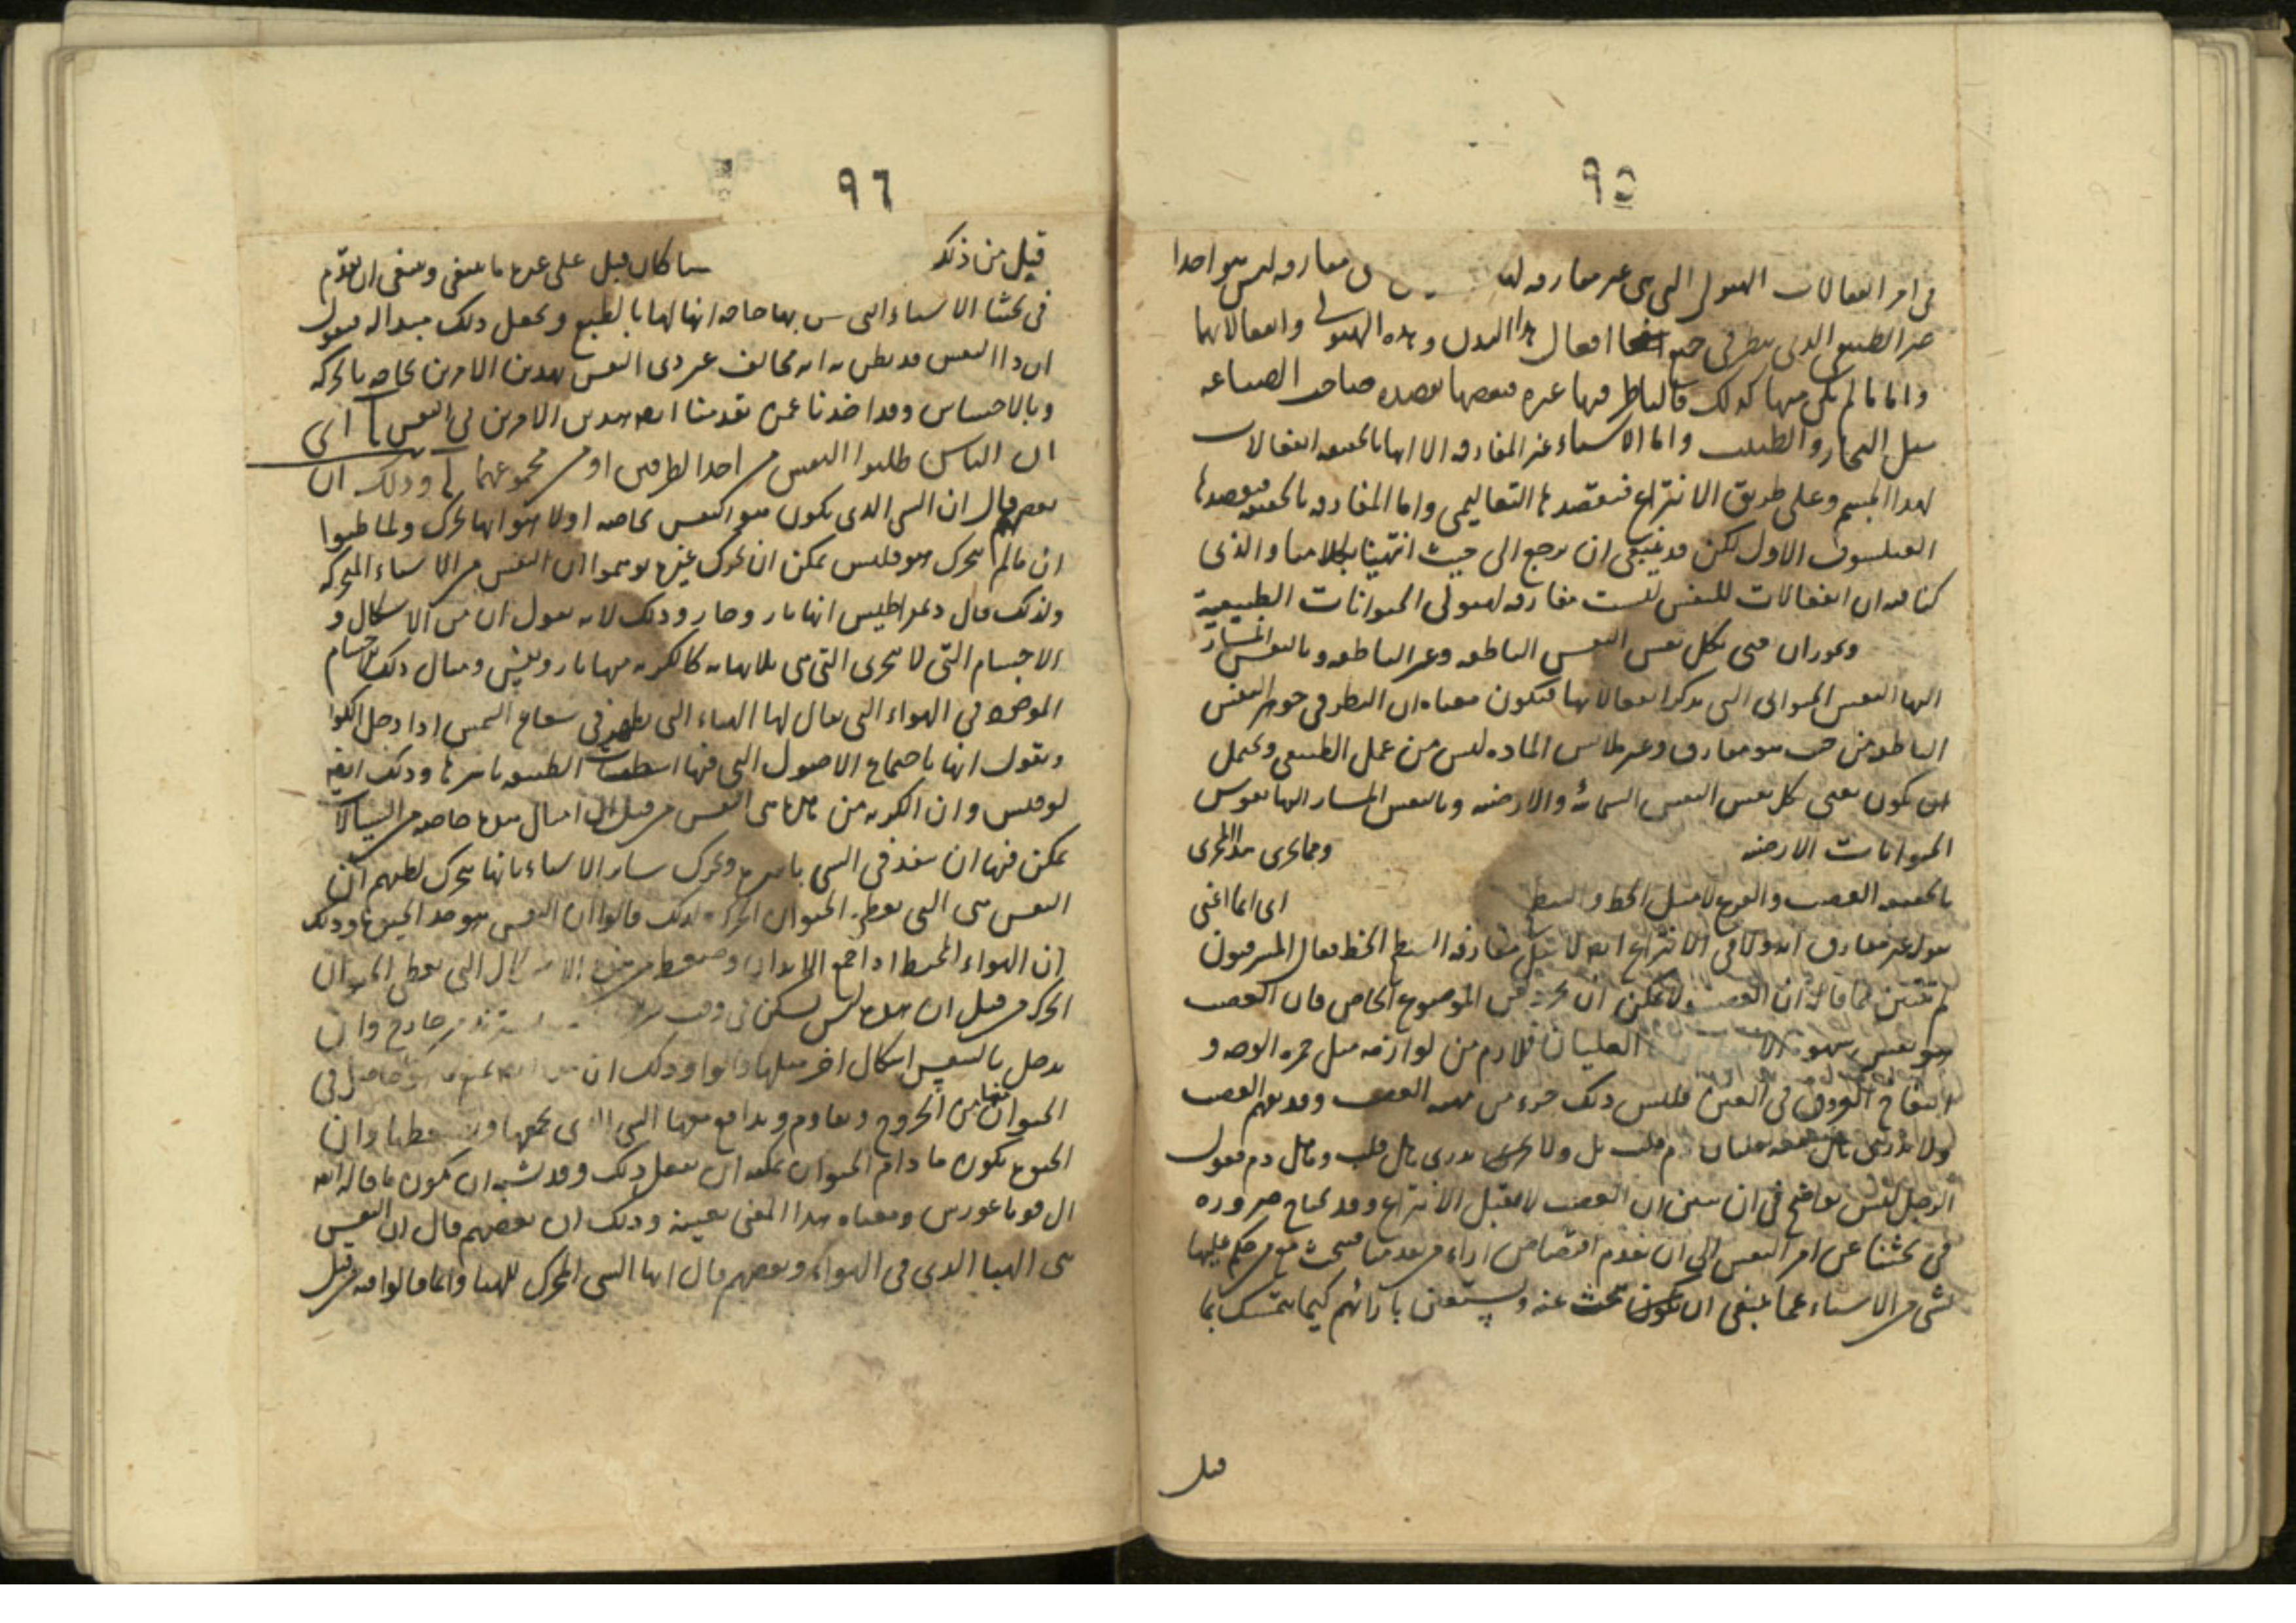 ٩٥
فى امر انفعالات الهيولى التى هى غير مفارقه لها مفارقه ليس هو احدا
غير الطبيعى الذى ينظر فى جميع افعال هذا البدن وهذه الهيولى وانفعالاتها
واما ما لم يكن منها كذلك فالناظر فيها غيره فبعضها يقصده صاحب الصناعه
مثل النجار والطبيب واما الاشياء غير المفارقه الا انها بالحقيقه انفعالات
لهذا الجسم وعلى طريق الانتزاع فيقصدها التعاليمى واما المفارقه بالحقيقه فيقصدها
الفيلسوف الاول لكن قد ينبغى ان نرجع الى حيث انتهينا بكلامنا والذى
كنا فيه ان انفعالات للنفس ليست مفارقه لهيولى الحيوانات الطبيعية
ويجوز ان عنى بكل نفس النفس الناطقه وغير الناطقه وبالنفس المشار
اليها النفس الحيوانى التى يذكر انفعالاتها فيكون معناه ان النظر فى جوهر النفس
الناطقه من حيث هو مفارق وغير ملابس الماده ليس من عمل الطبيعى ويحتمل
ان يكون يعنى بكل نفس النفس السمائه والارضيه وبالنفس المشار اليها نفوس
الحيوانات الارضيه وما يجرى هذا المجرى
بالحقيقه الغضب والفزع لا مثل الخط والسطح اى انما اعنى
بقول غير مفارق انه ولا فى الانتزاع ايضا لا مثل مفارقه السطح الخط فقال المشرقيون
لم يتبين بما قاله ان الغضب لا يمكن ان يجرد عن الموضوع الخاص فان الغضب
هو نفس شهوة الا الغليان فلازم من لوازمه مثل حمرة الوجه و
انتفاخ العروق فى العين فليس ذلك جزء من مهيه الغضب وقد يفهم الغضب
ولا ندرى هل معه غليان دم قلب بل ولا ندرى هل قلب وهل دم فقول
الرجل ليس بواضح فى ان يبين ان الغضب لا يقبل الانتزاع وقد نحتاج ضروره
فى بحثنا عن امر النفس الى ان نقدم اقتصاص اراء من تقدمنا فنبحث مع من حكم قبلها
بشى من الاشياء عما ينبغى ان يكون نبحث عنه ونستعين بآرائهم كيما نتمسك بما
قيل
٩٦
قيل من ذلك ما كان قيل على غير ما ينبغى وينبغى ان نقدم
فى بحثنا الاشياء التى بها خاصه انها لها بالطبع ونجعل ذلك مبداله فنقول
ان ذا النفس قد يظن به انه مخالف غير ذى النفس بهذين الامرين خاصه بالحركه
وبالاحساس وقد اخذنا عمن تقدمنا ايضا هذين الامرين فى النفس اى
ان الناس طلبوا النفس من احد الطرفين او من مجموعهما وذلك ان
بعضهم قال ان الشى الذى يكون هو النفس خاصه اولا هو انها تحرك ولما ظنوا
ان ما لم يتحرك هو فليس يمكن ان يحرك غيره توهموا ان النفس من الاشياء المتحركه
ولذلك قال ديمراطيس انها نار وحار وذلك لانه يقول ان من الاشكال و
الاجسام التى لا تتجزى التى هى بلانهايه كالكريه منها نار ونفس ومثال ذلك الاجسام
الموجوده فى الهواء التى يقال لها الهباء التى تظهر فى شعاع الشمس اذا دخل الكوا
ويقول انها باجتماع الاصول التى فيها اسطقسات الطبيعه باسرها وذلك ايضا
لوقيس وان الكريه من هذه هى النفس من قبل ان امثال هذه خاصه من الشكالات
يمكن فيها ان ينفذ فى الشى باسره وتحرك سائر الاشياء بانها تتحرك لظنهم ان
النفس هى التى تعطى الحيوان الحركه ولذلك قالوا ان النفس هو حد الحيوه وذلك
ان الهواء المحيط اذا جمع الابدان وضغط من الاشكال التى تعطى الحيوان
الحركه من قبل ان هذه ليس تسكن فى وقت من خارج وان
يدخل بالتنفس اشكال اخر مثلها قالوا وذلك ان يمنع ما هو حاصل فى
الحيوان من الخروج ويقاوم ويدافع معها الشى الذى يجمعها ويضغطها وان
الحيوه يكون ما دام الحيوان يمكنه ان يفعل ذلك وقد يشبه ان يكون ما قاله ايضا
ال فوثاغورس ومعناه هذا المعنى بعينه وذلك ان بعضهم قال ان النفس
هى الهبا الذى فى الهواء وبعضهم قال انها الشى المحرك للهبا وانما قالوا فيه من قبل